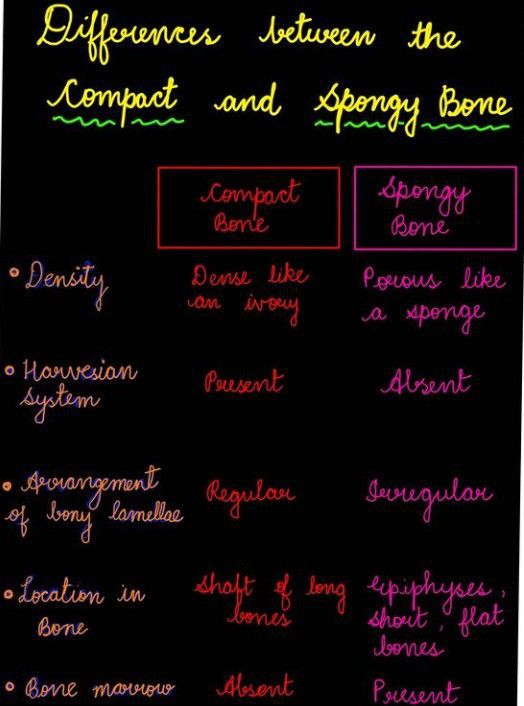 Differences between the
Compact and Spongy Bone
Compact Bone
Spongy Bone
Density
Dense like an ivory
Porous like a sponge
Harvesian System
Present
Absent
Arrangement of bony lamellae
Regular
Irregular
Location in Bone
Shaft of long bones
Epiphyses, short, flat bones
Bone marrow
Absent
Present